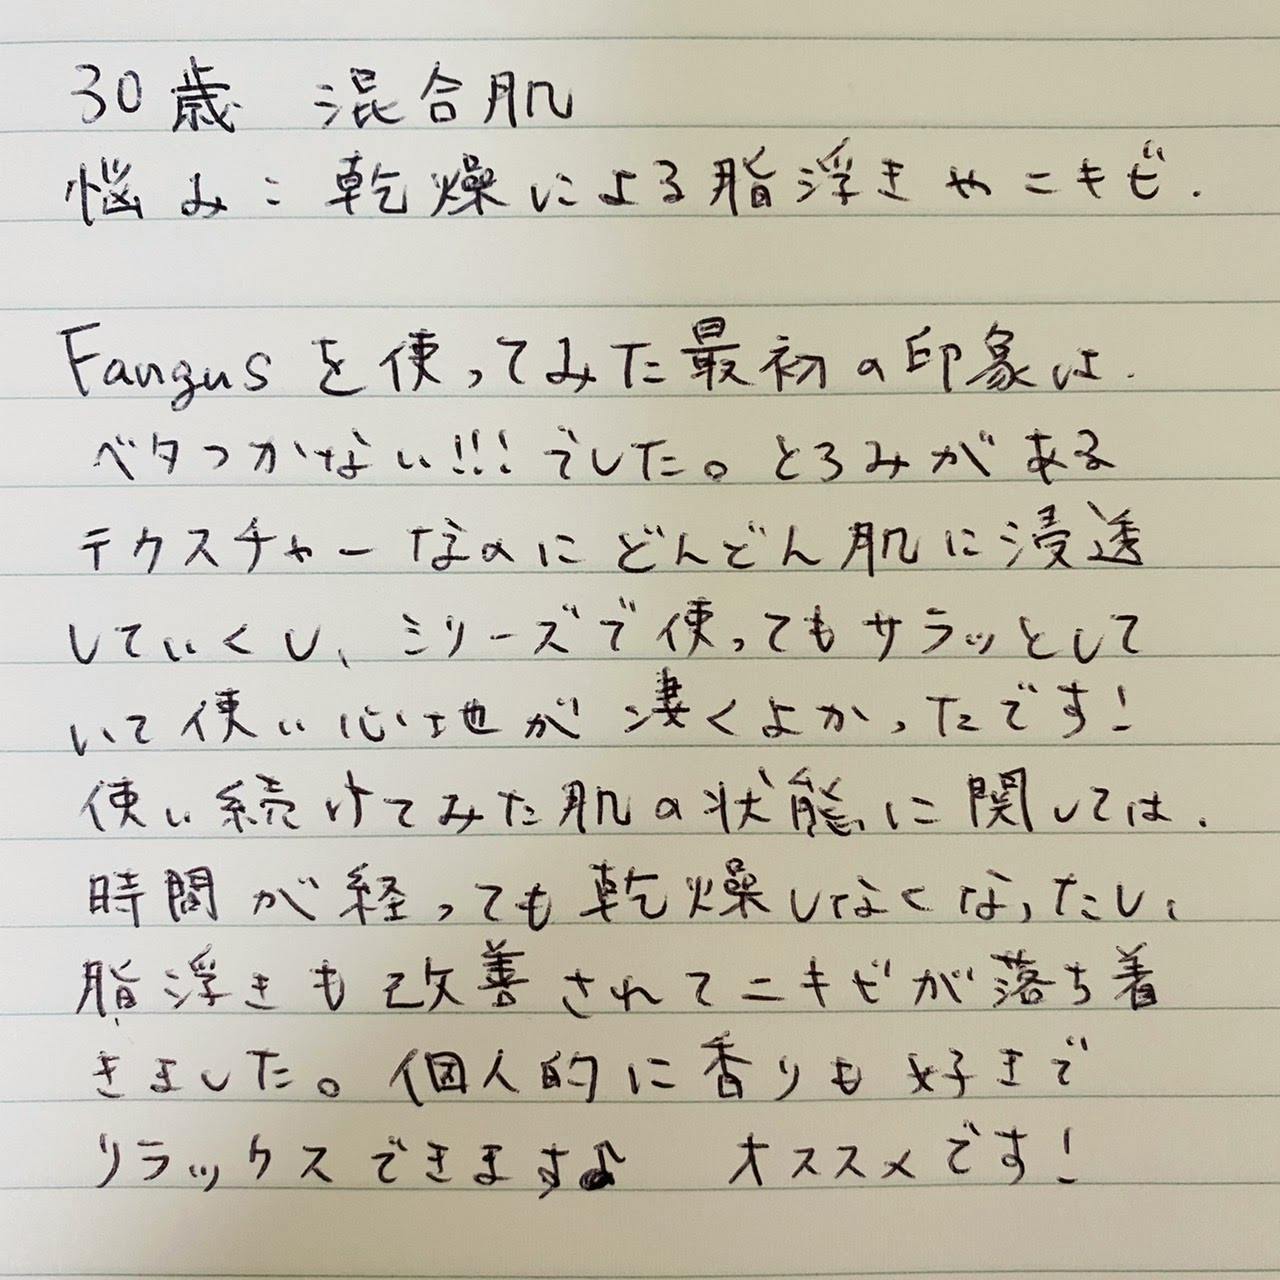 30歳 混合肌
悩み:乾燥による脂浮きやニキビ.
Fangusを使ってみた最初の印象は.
ベタつかない!!!でした。とろみがある
テクスチャーなのにどんどん肌に浸透
していくし、シリーズで使ってもサラッとして
いて使い心地が凄くよかったです!
使い続けてみた肌の状態に関しては.
時間が経っても乾燥しなくなったし、
脂浮きも改善されてニキビが落ち着
きました。個人的に香りも好きで
リラックスできます♪ オススメです!